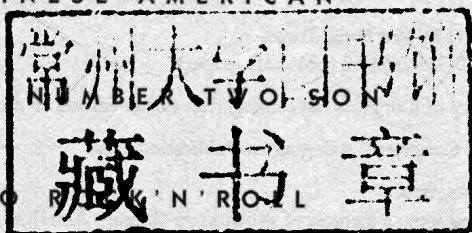 INESE AMERICAN
常州大学图书馆
NUMBER TWO SON
藏书章
O ROCK'N'ROLL